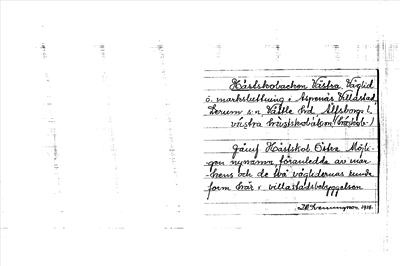 Hästskobacken Västra Väglid
o. markslutning i Aspenäs Villastad,
Lerum s:n Vättle hd Älfsborgs l.
västra hästskobacken
Jämf Hästskob. Östra Möjli-
gen nynamn föranledde av mar-
kens och de två väglidernas
form här i villastadsbebyggelsen
1928.